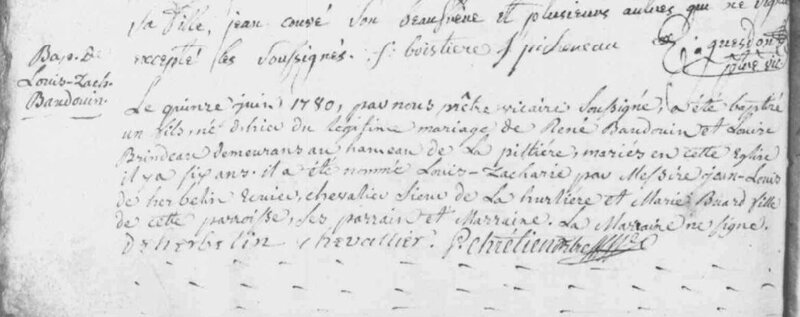 sa fille, jean couvé son beaufrère et plusieurs autres qui ne sign
excepté les soussignés. f. boistiere f picheneau
Bap. de
Louis-Zach.
Baudouin.
Le quinze juin 1780, par nous prêtre vicaire soussigné, a été baptisé
un fils, né d'hier du légitime mariage de René Baudouin et Louise
Brindeau demeurans au hameau de La piltiére, mariés en cette Eglise
il y a six ans. il a été nommé Louis-Zacharie par Messire jean-Louis
de herbelin Ecuier, chevalier Sieur de La hurliere et Marie Buard fille
de cette parroisse, ses parrain et Marraine. La Marraine ne signe.
De herbelin chevallier. P chrétien